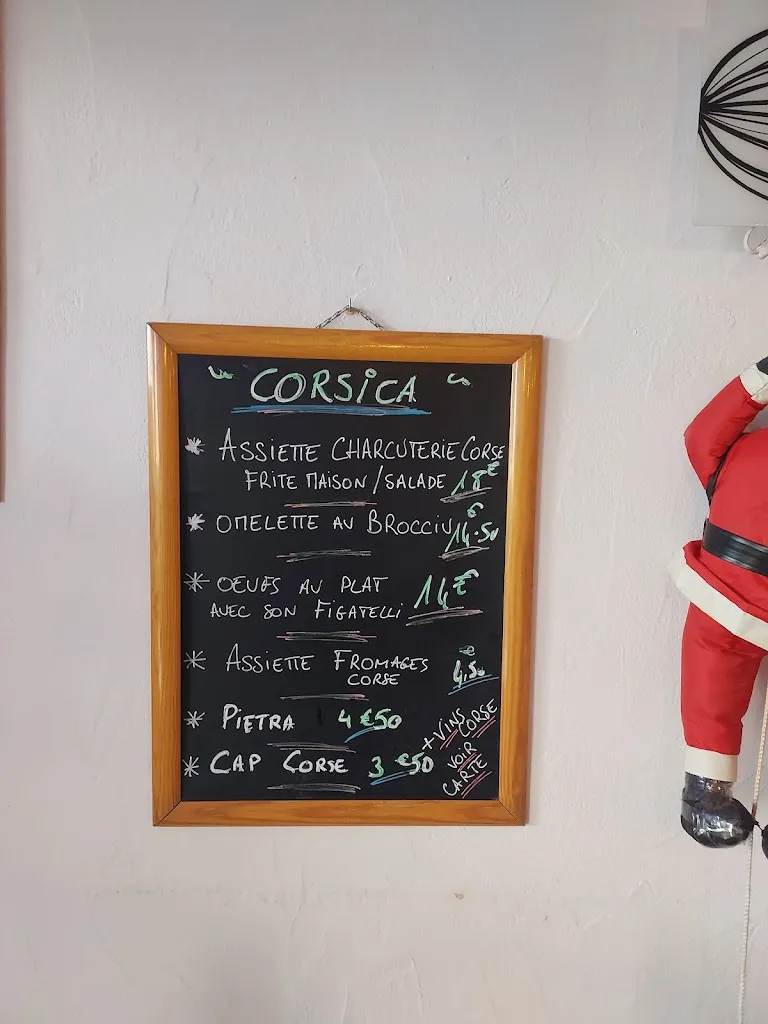 CORSICA
* ASSIETTE CHARCUTERIE CORSE
FRITE MAISON/SALADE 18€
* OMELETTE AU BROCCIU 14.50
* OEUFS AU PLAT
AVEC SON FIGATELLI 14€
* ASSIETTE FROMAGES
CORSE 4.50
* PIETRA 4€50
* CAP CORSE 3€50
+ VINS CORSE
VOIR
CARTE